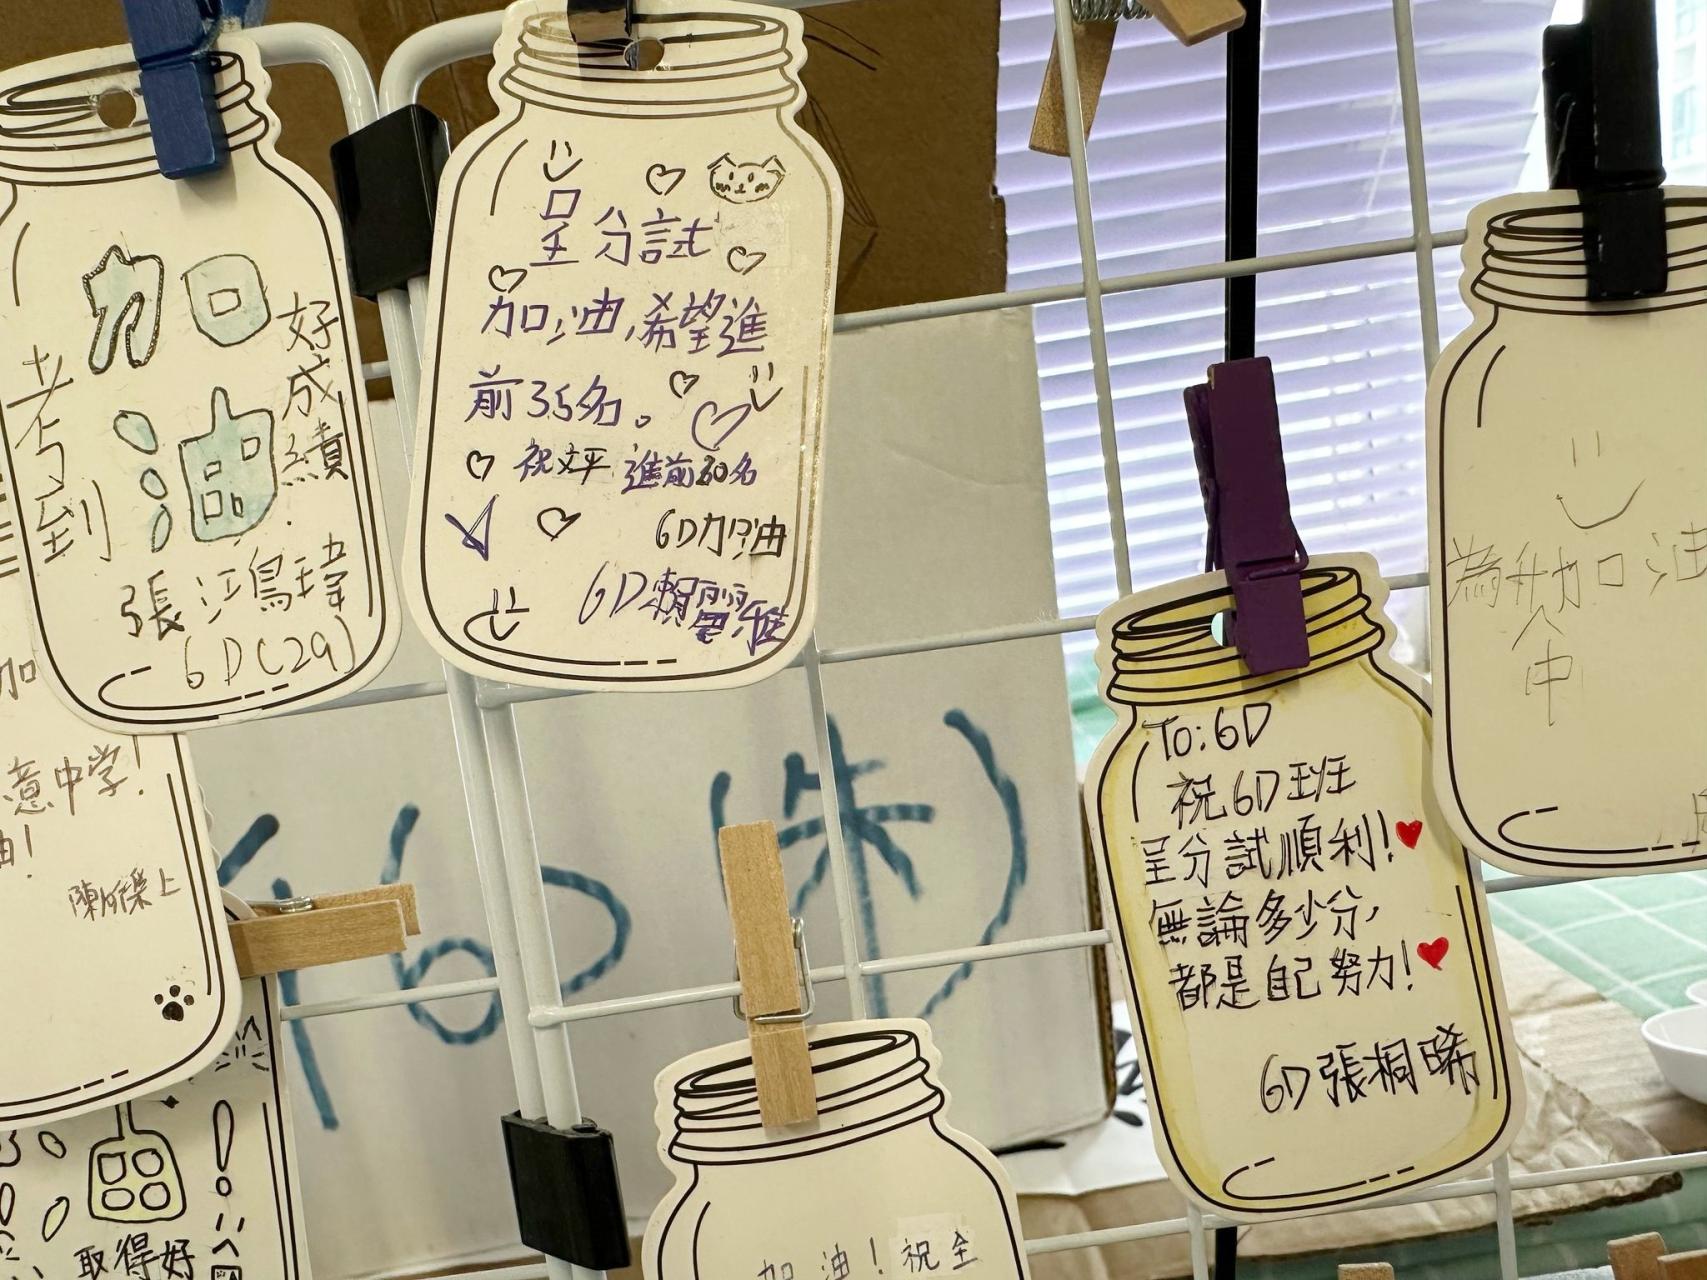 加油
考到
好成績
張鴻瑋
6D(29)
呈分試
加油,希望進
前35名。
祝文平 進前30名
6D加油
6D賴靈雅
加
意中学!
油!
陳
上
取得好
(6
朱)
To: 6D
祝6D班
呈分試順利!
無論多少分,
都是自己努力!
6D張桐晞
為升中加油
加油!祝全